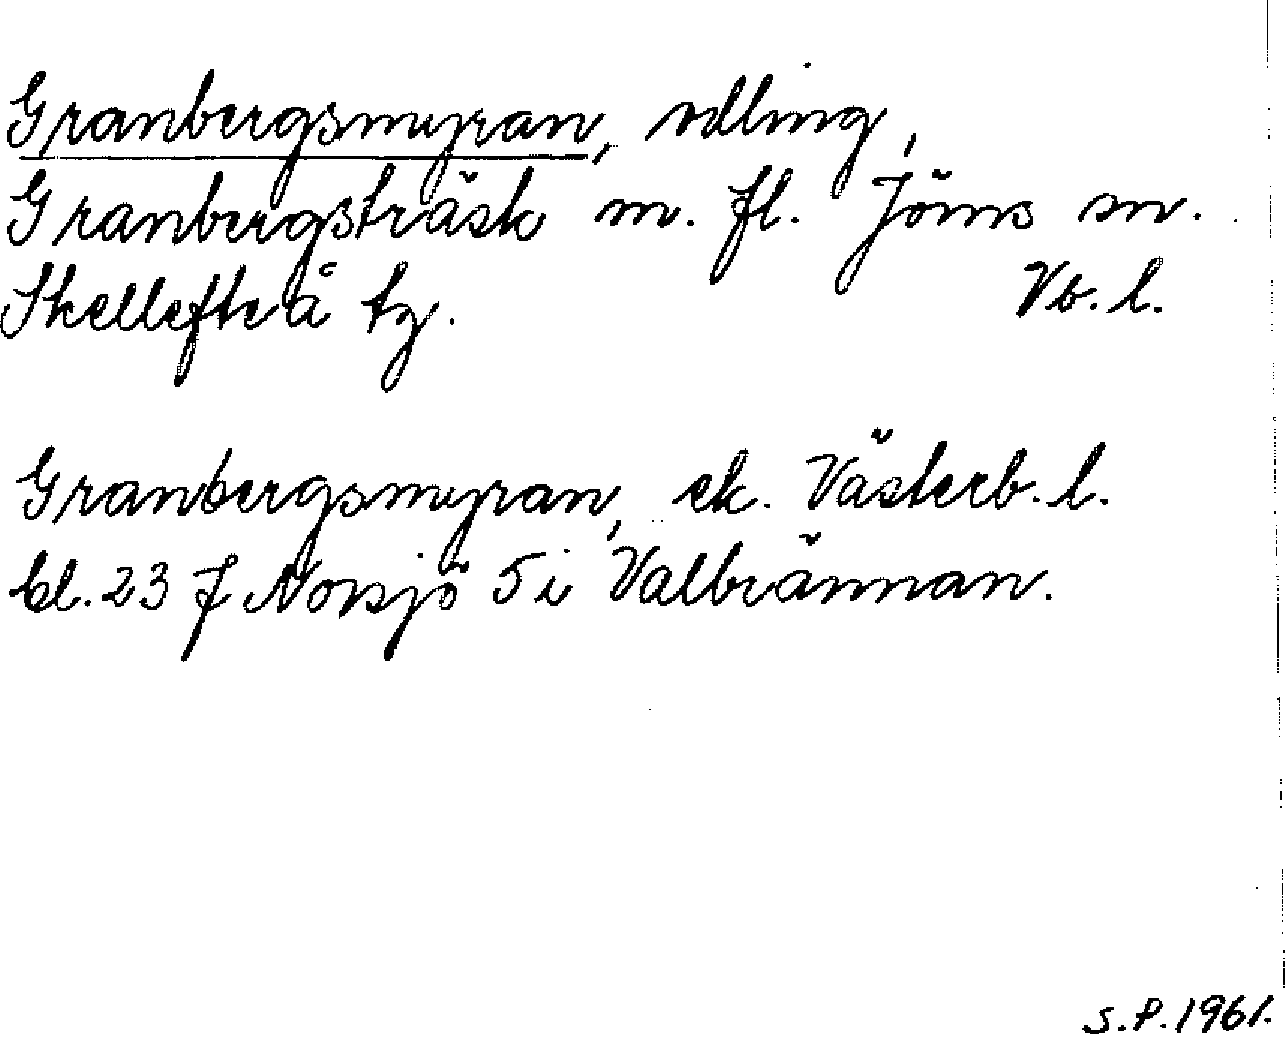 Granbergsmyran, odling,
Granbergsträsk m. fl. Jörns sn.
Skellefteå tg. Vb. l.
Granbergsmyran, ek. Västerb. l.
bl. 23 J Norsjö 5 i Valbrännan.
S.P. 1961.